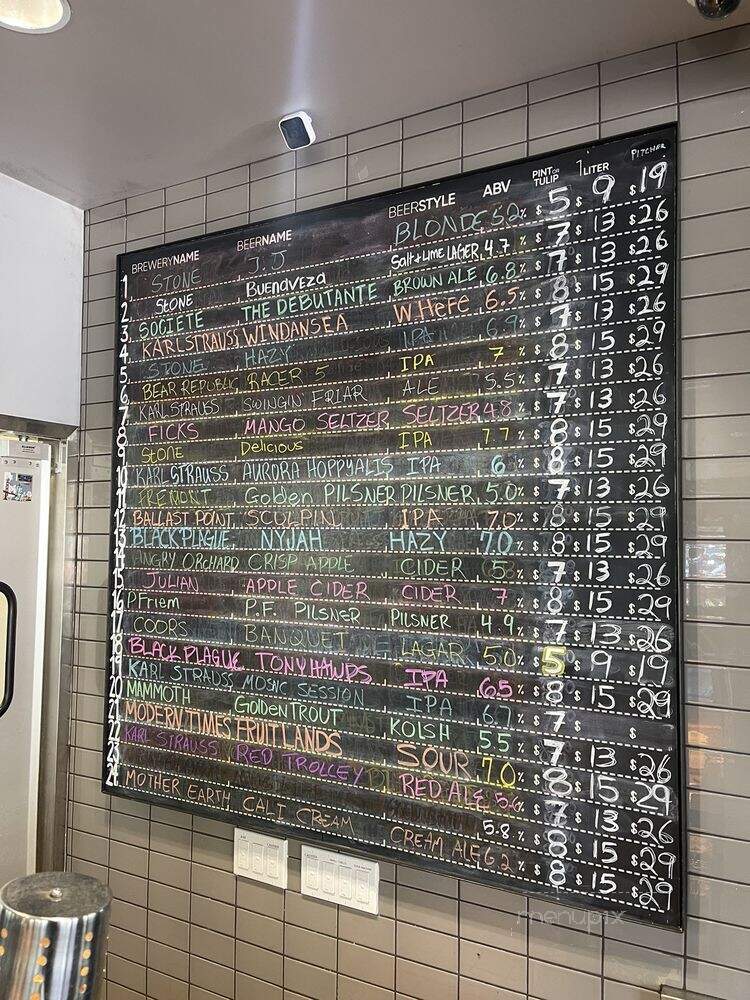 BREWERYNAME BEERNAME BEERSTYLE ABV PINT OR TULIP 1 LITER PITCHER
1 STONE J.J BLONDE 5.2% $5 $9 $19
2 STONE Buenaveza Salt+Lime LAGER 4.7% $7 $13 $26
3 SOCIETE THE DEBUTANTE BROWN ALE 6.8% $7 $13 $26
4 KARLSTRAUSS WINDANSEA W.HeFe 6.5% $8 $15 $29
5 STONE HAZY IPA 6.9% $7 $13 $26
6 BEAR REPUBLIC RACER 5 IPA 7% $8 $15 $29
7 KARL STRAUSS SWINGIN' FRIAR ALE 5.5% $7 $13 $26
8 FICKS MANGO SELTZER SELTZER 4.8% $7 $13 $26
9 Stone Delicious IPA 7.7% $8 $15 $29
10 KARL STRAUSS AURORA HOPPYALIS IPA 6% $8 $15 $29
11 FREMONT Golden PILSNER PILSNER 5.0% $7 $13 $26
12 BALLAST POINT SCULPIN IPA 7.0% $8 $15 $29
13 BLACK PLAGUE NYJAH HAZY 7.0% $8 $15 $29
14 ANGRY ORCHARD CRISP APPLE CIDER 5% $7 $13 $26
15 JULIAN APPLE CIDER CIDER 7% $8 $15 $29
16 PFriem P.F. PILSNER PILSNER 4.9% $7 $13 $26
17 COORS BANQUET LAGAR 5.0% $5 $9 $19
18 BLACK PLAGUE TONY HAWDS IPA 6.5% $8 $15 $29
19 KARL STRAUSS MOSAIC SESSION IPA % $7 $ $
20 MAMMOTH Golden TROUT KOLSH 5.5% $7 $13 $26
21 MODERN TIMES FRUITLANDS SOUR 7.0% $8 $15 $29
22 KARL STRAUSS RED TROLLEY RED ALE % $7 $13 $26
23 5.8% $8 $15 $29
24 MOTHER EARTH CALI CREAM CREAM ALE 6.2% $8 $15 $29
menupix